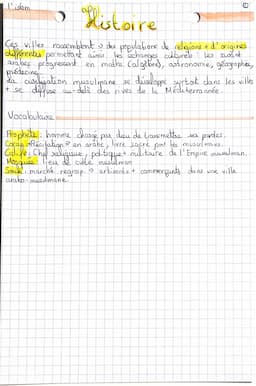 L'islam
Histoire
Ces villes rassemblent des populations de religions + d'origines
différentes permettant ainsi les échanges culturels : les savants
arabes progressent en maths (algèbre), astronomie, géographie,
médecine...
La civilisation musulmane se développe surtout dans les villes
+ se diffuse au-delà des rives de la Méditerranée.
Vocabulaire
Prophète : homme chargé par dieu de transmettre sa parole.
Coran : "Récitation" en arabe, livre sacré par les musulmans.
Calife : Chef religieux, politique + militaire de l'Empire musulman.
Mosquée : lieu de culte musulman
Souk : marché regroup. artisants + commerçants dans une ville
arabo-musulmane.